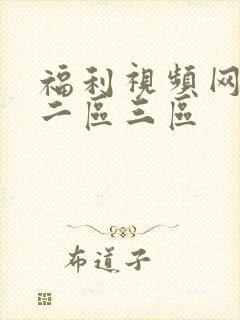 福利視頻网
二區三區
布道子